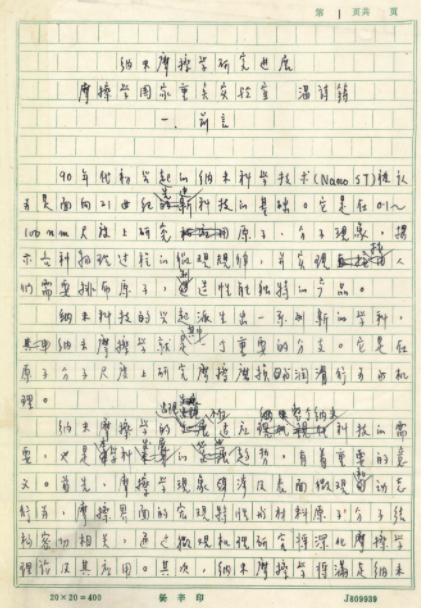 第 1 页共 页
纳米摩擦学研究进展
摩擦学国家重点实验室 温诗铸
一、前言
90年代初兴起的纳米科学技术(Nano ST)被认
为是面向21世纪的新科技的基础。它是在0.1~
100nm尺度上研究原子、分子现象，揭
示各种物理过程的微观规律，并实现人
们需要排布原子，造性能独特的产品。
纳米科技的兴起派生出一系列新的学科，
其中纳米摩擦学就是一个重要的分支。它是在
原子分子尺度上研究摩擦磨损的润滑行为和机
理。
纳米摩擦学的出现适应纳米科技的需
要，也是学科的发展趋势，有着重要的意
义。首先，摩擦学现象涉及表面微观的动态
行为，摩擦界面的宏观特性与材料原子分子结
构密切相关，通过微观机理研究将深化摩擦学
理论及其应用。其次，纳米摩擦学将满足纳米
20×20=400
J809939